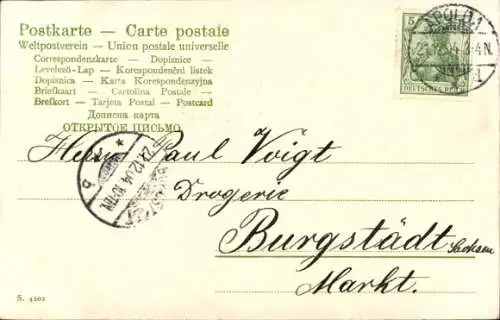 Postkarte — Carte postale
Weltpostverein — Union postale universelle
Correspondenzkarte — Dopisnice —
Levelező-Lap — Korespondenční listek
Dopisnica — Karta Korespondenzyjna
Briefkaart — Cartolina Postale —
Brefkort — Tarjeta Postal — Postcard
Дописна карта
ОТКРЫТОЕ ПИСЬМО
5
APOLDA
DEUTSCHES REICH
22.12.04.10-11V.
Herrn Paul Voigt
Drogerie
Burgstädt Sachsen
Markt.
S. 4202